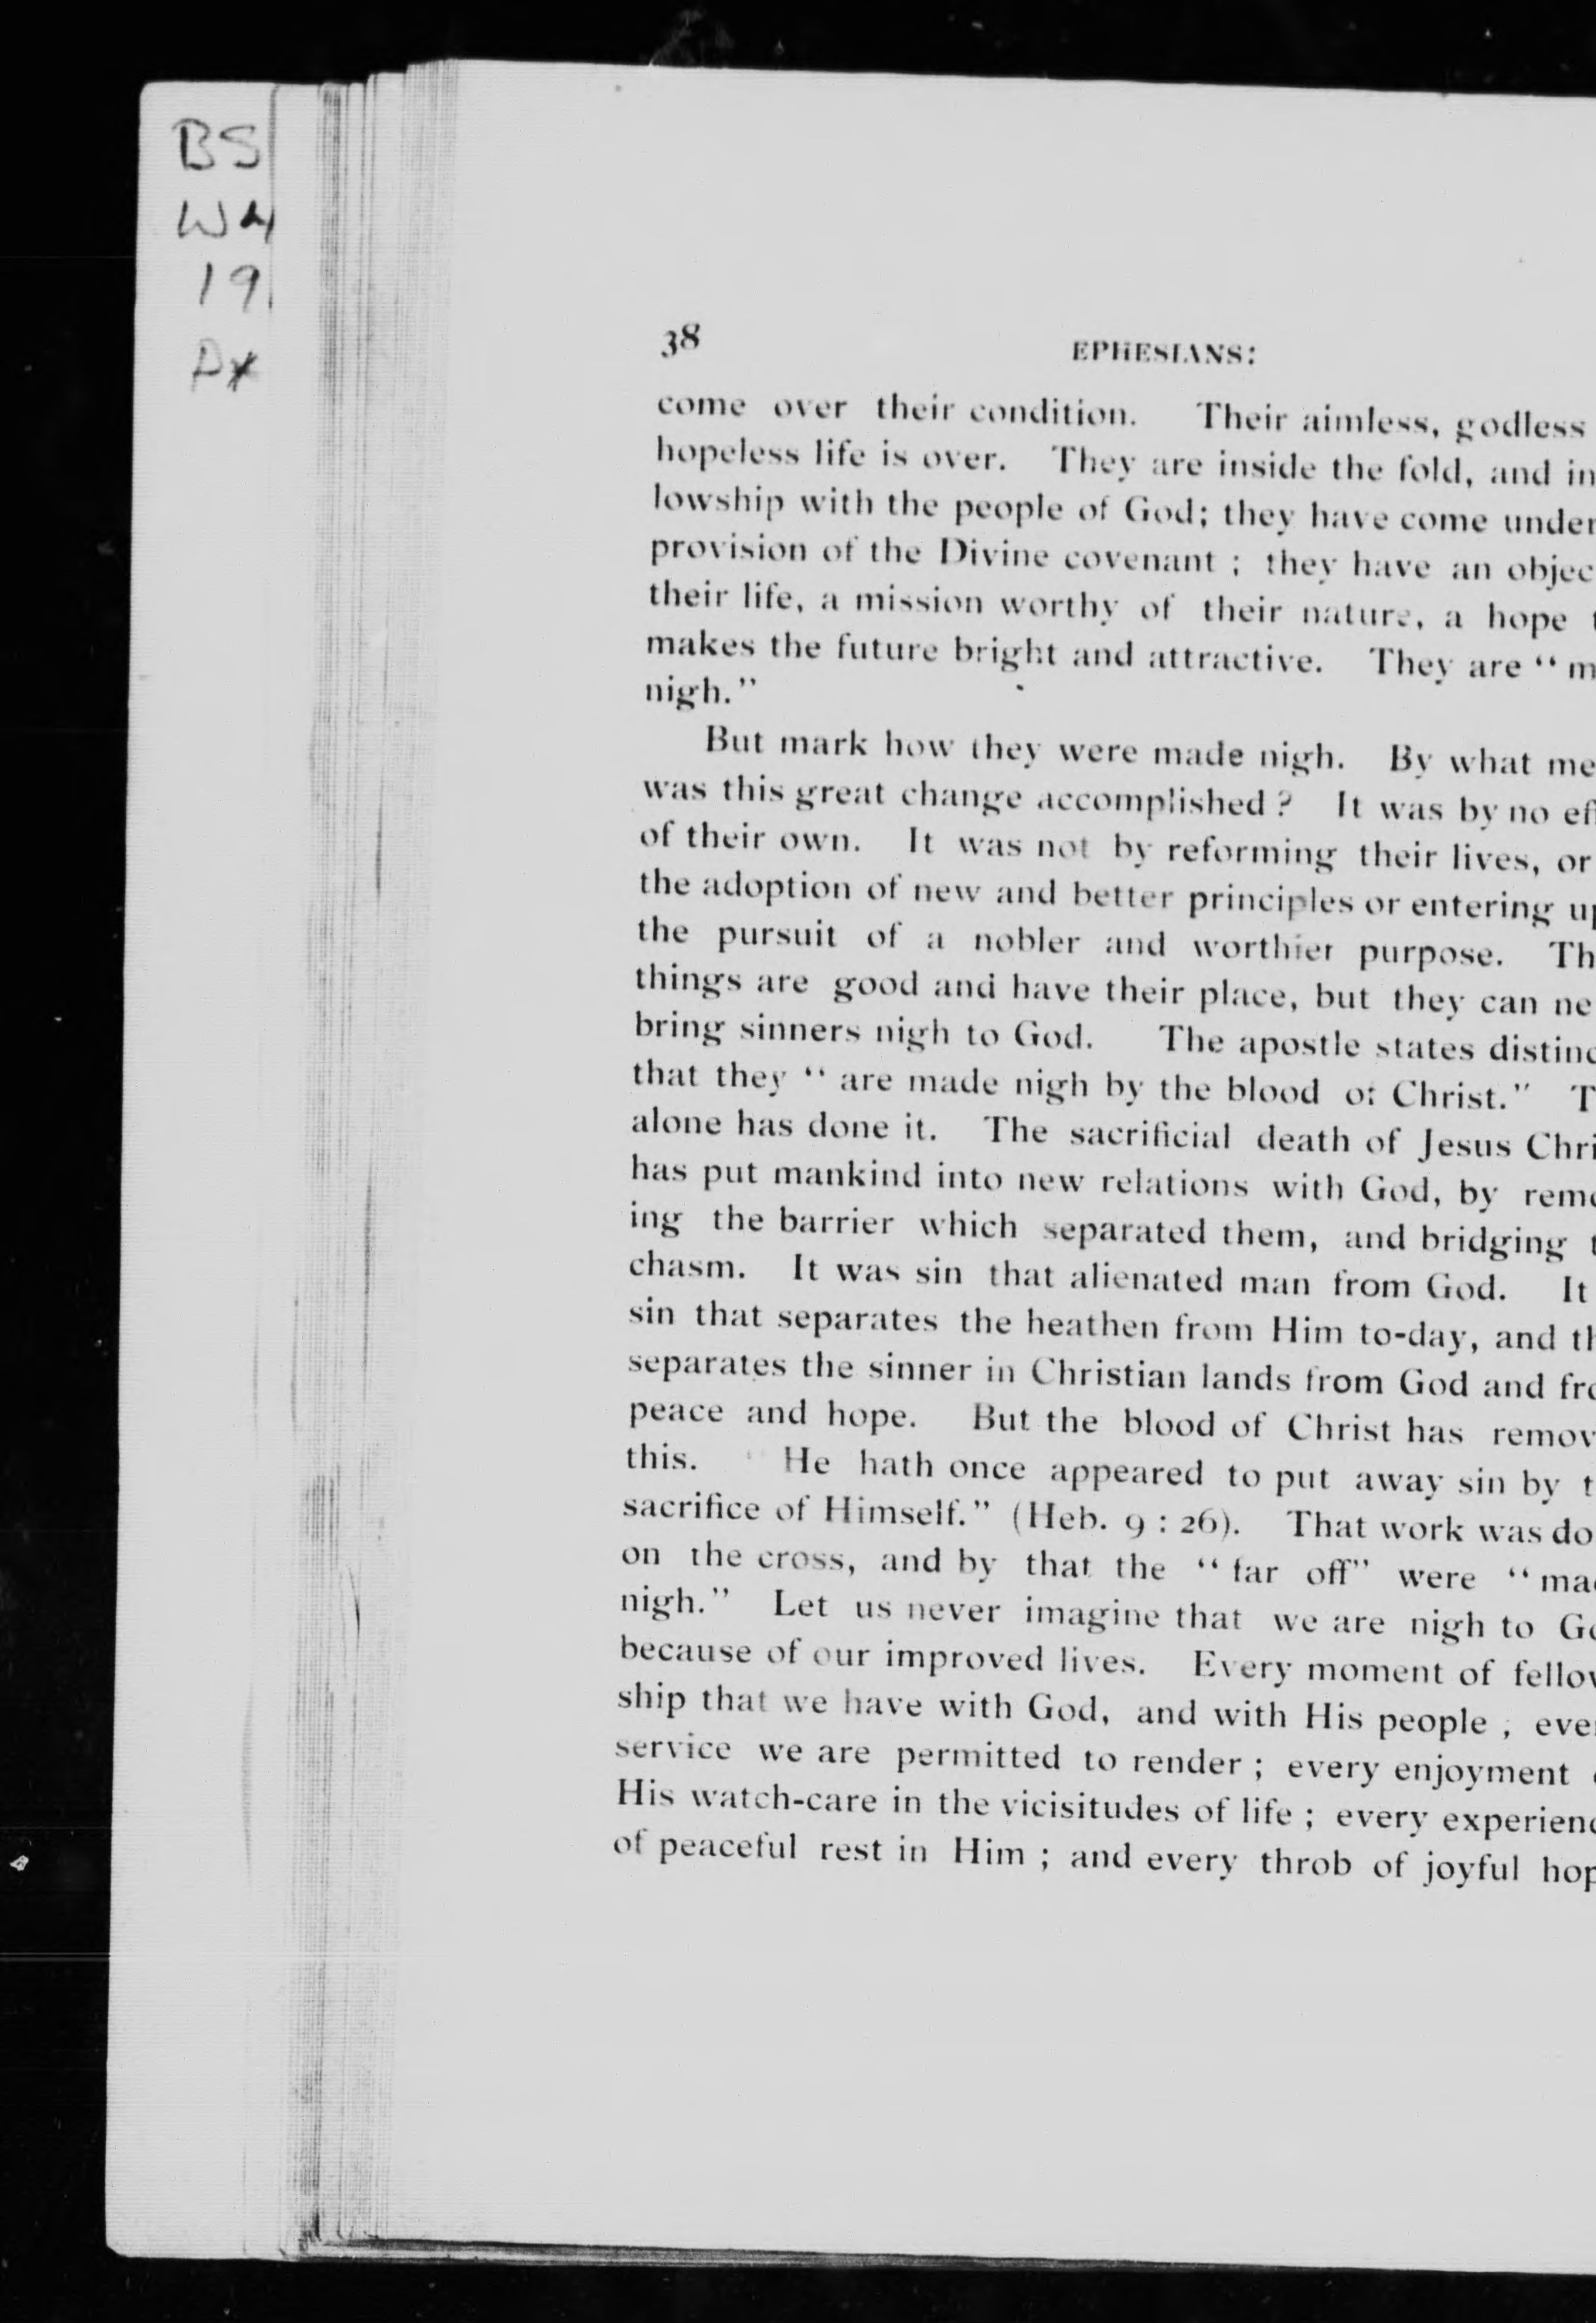 BS
W4
19
38
EPHESIANS:
come over their condition. Their aimless, godless
hopeless life is over. They are inside the fold, and in
lowship with the people of God; they have come under
provision of the Divine covenant ; they have an objec
their life, a mission worthy of their nature, a hope t
makes the future bright and attractive. They are “ m
nigh.”
But mark how they were made nigh. By what me
was this great change accomplished ? It was by no ef
of their own. It was not by reforming their lives, or
the adoption of new and better principles or entering up
the pursuit of a nobler and worthier purpose. Th
things are good and have their place, but they can ne
bring sinners nigh to God. The apostle states distinc
that they “ are made nigh by the blood of Christ.” T
alone has done it. The sacrificial death of Jesus Chri
has put mankind into new relations with God, by remo
ing the barrier which separated them, and bridging t
chasm. It was sin that alienated man from God. It
sin that separates the heathen from Him to-day, and th
separates the sinner in Christian lands from God and fro
peace and hope. But the blood of Christ has remov
this. He hath once appeared to put away sin by t
sacrifice of Himself.” (Heb. 9 : 26). That work was do
on the cross, and by that the “ far off” were “ mad
nigh.” Let us never imagine that we are nigh to Go
because of our improved lives. Every moment of fellow
ship that we have with God, and with His people ; ever
service we are permitted to render ; every enjoyment o
His watch-care in the vicisitudes of life ; every experienc
of peaceful rest in Him ; and every throb of joyful hop